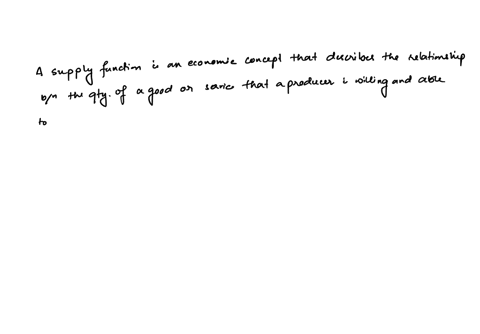 A supply function is an economic concept that describes the relationship
b/n the qty. of a good or service that a producer is willing and able
to